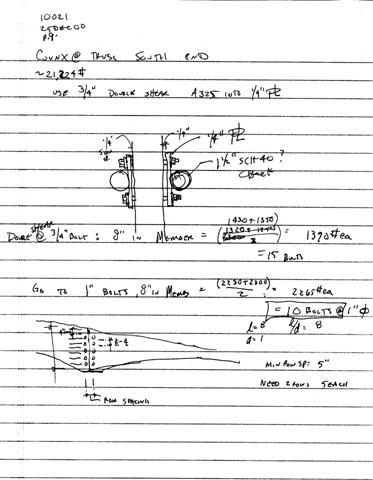 10021
CONNX @ TRUSS SOUTH END
~21,224#
USE 3/4" DOUBLE SHEAR A325 INTO 1/4" PL
1/4"
1/4" PL
1 1/2" SCH 40 ?
CHECK
SHEAR
DOUBLE @ 3/4" BOLT: 8" IN MEMBER = (1430+1350) / 2 = 1390# ea
= 15 BOLTS
GO TO 1" BOLTS, 8" IN MEMB = (2230+2300) / 2 = 2265# ea
= 10 BOLTS @ 1" Φ
l = 8 l/d = 8
d = 1
MIN ROW SP: 5"
NEED 2 ROWS 5 EACH
ROW SPACING